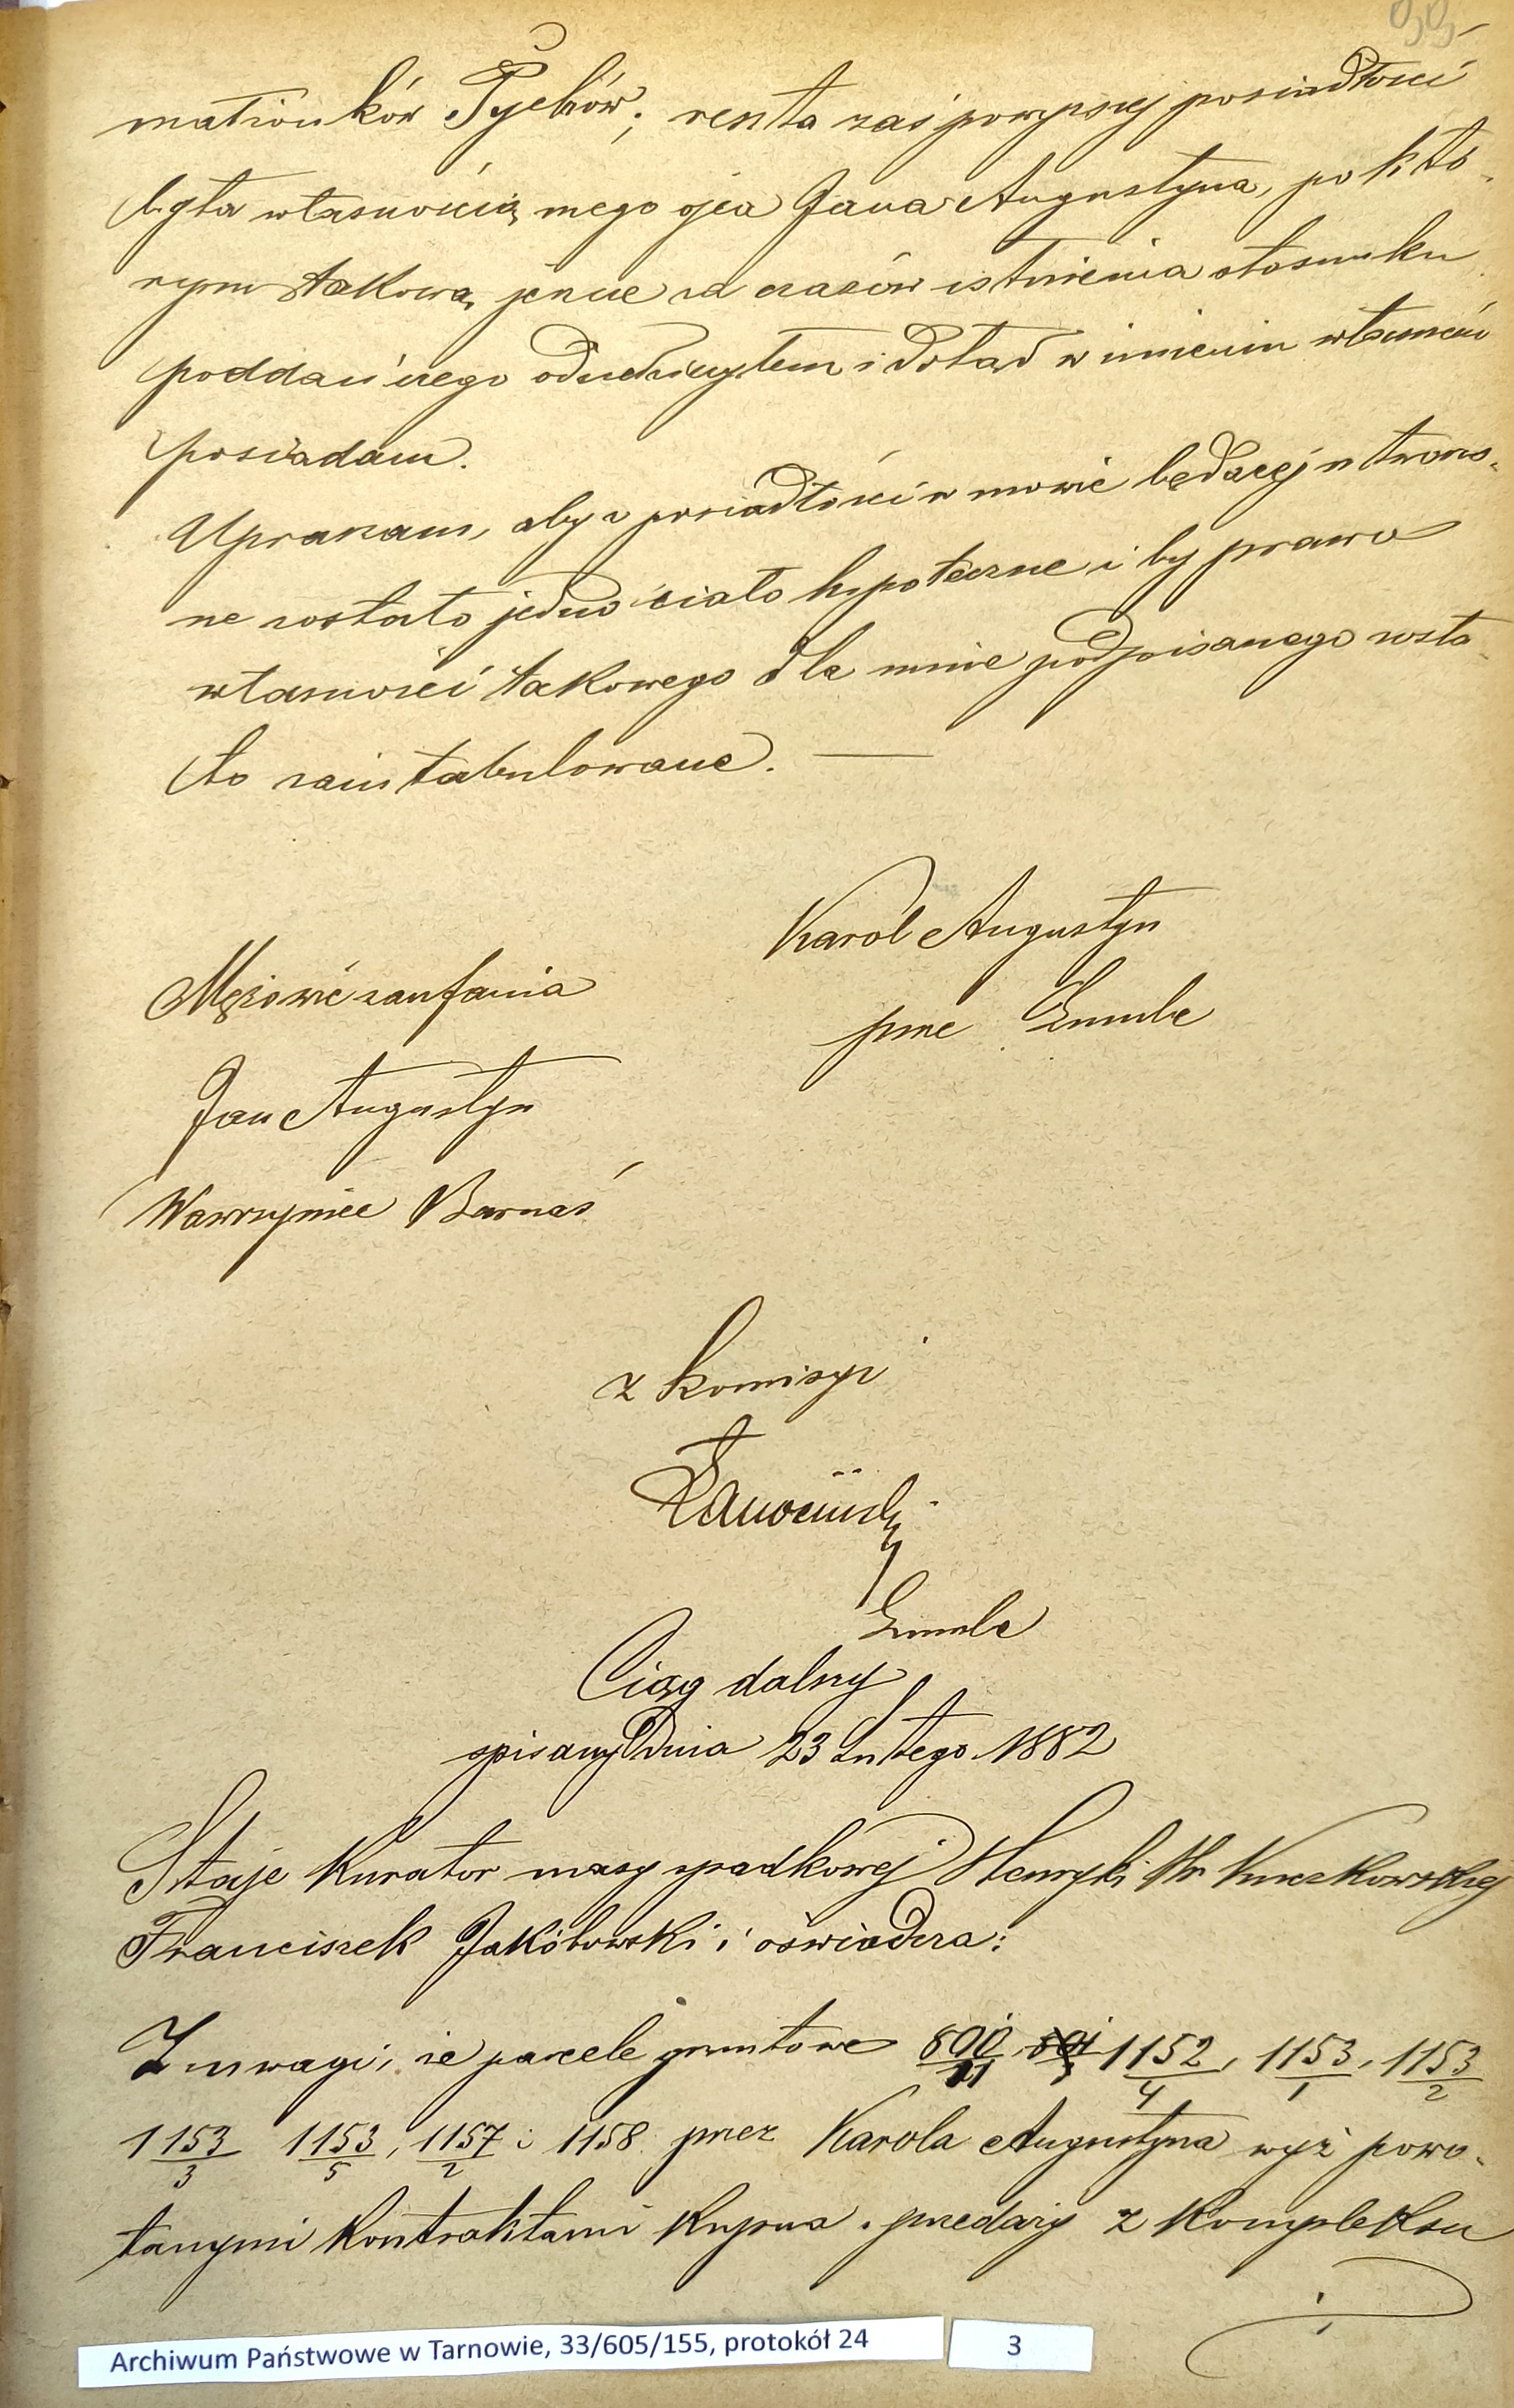 małżonków Pychów; reszta zaś powyższej posiadłości
była własnością mego ojca Jana Augustyna, po któ-
rym takową jeszcze za czasów istnienia stosunku
poddańczego odziedziczyłem i dotąd w imieniu własnem
posiadam.
Upraszam, aby z posiadłości w mowie będącej utworzo-
ne zostało jedno ciało hypoteczne i by prawo
własności takowego dla mnie podpisanego zosta-
ło zaintabulowane. —
Karol Augustyn
Mężowie zaufania
prze
Jan Augustyn
Wawrzyniec Barnaś
z komisyi
Ciąg dalszy
spisany dnia 23 Lutego 1882
Staje kurator masy spadkowej Henryki Hr Kuczkowskiej
Franciszek Jakóbowski i oświadcza:
Z uwagi, że parcele gruntowe 800/11, 1152/4, 1153/1, 1153/2
1153/3 1153/5, 1157/2 i 1158 przez Karola Augustyna wyż powo-
łanymi kontraktami kupna sprzedaży z kompleksu
Archiwum Państwowe w Tarnowie, 33/605/155, protokół 24
3